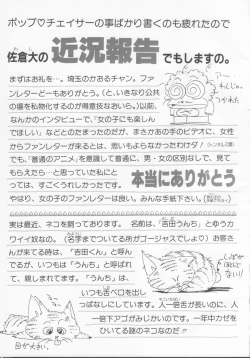 ポップ♡チェイサーの事ばかり書くのも疲れたので
佐倉大の 近況報告 でもしますの。
まずはお礼を…。埼玉のかおるチャン。ファ
ンレターどーもありがとう。(と、いきなり公共
の場を私物化するのが得意技なおいら。)以前、
なんかのインタビューで、「女の子にも楽しん
でほしい」などとのたまったのだが、まさかあの手のビデオに、女性
からファンレターが来るとは、思いもよらなかったわけさ
でも、「普通のアニメ」を意識して普通に、男・女の区別なしで、見て
もらえたら…と思っていた私にと
っては、すごくうれしかったです。
本当にありがとう
やはり、女の子のファンレターは良い。みんな手紙下さい。
実は最近、ネコを飼っております。名前は、「吉田うんち」とゆうカ
ワイイ奴なの。(名字までついてる所がゴージャスでしょ♡)お客さ
んが来てる時は、「吉田くん」と呼ん
でるが、いつもは「うんち」と呼ばれ
て、親しまれてます。「うんち」は、
いつも舌ベロを出し
っぱなしにしています。人一倍舌が長いのに、人
一倍下アゴがみじかいのです。一年中カゼを
ひいてる謎のネコなのだ!!
わんじゅ
つかれた
目が大きい。